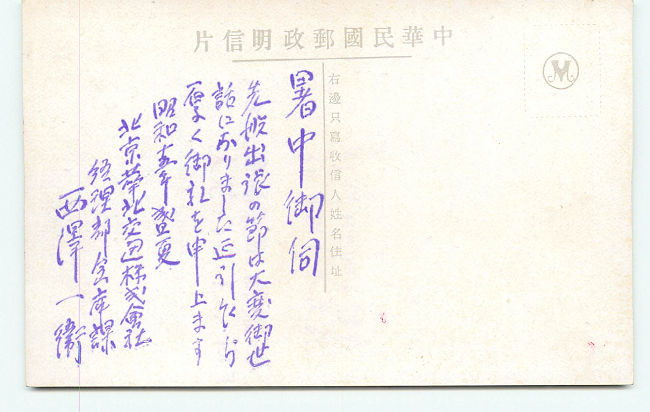 中華民國郵政明信片
右邊只寫收信人姓名住址
暑中御伺
先般出張の節は大変御世
話になりました延引ながら
厚く御礼を申上ます
昭和十五年盛夏
北京華北交通株式會社
経理部倉庫課
西澤一衛
M